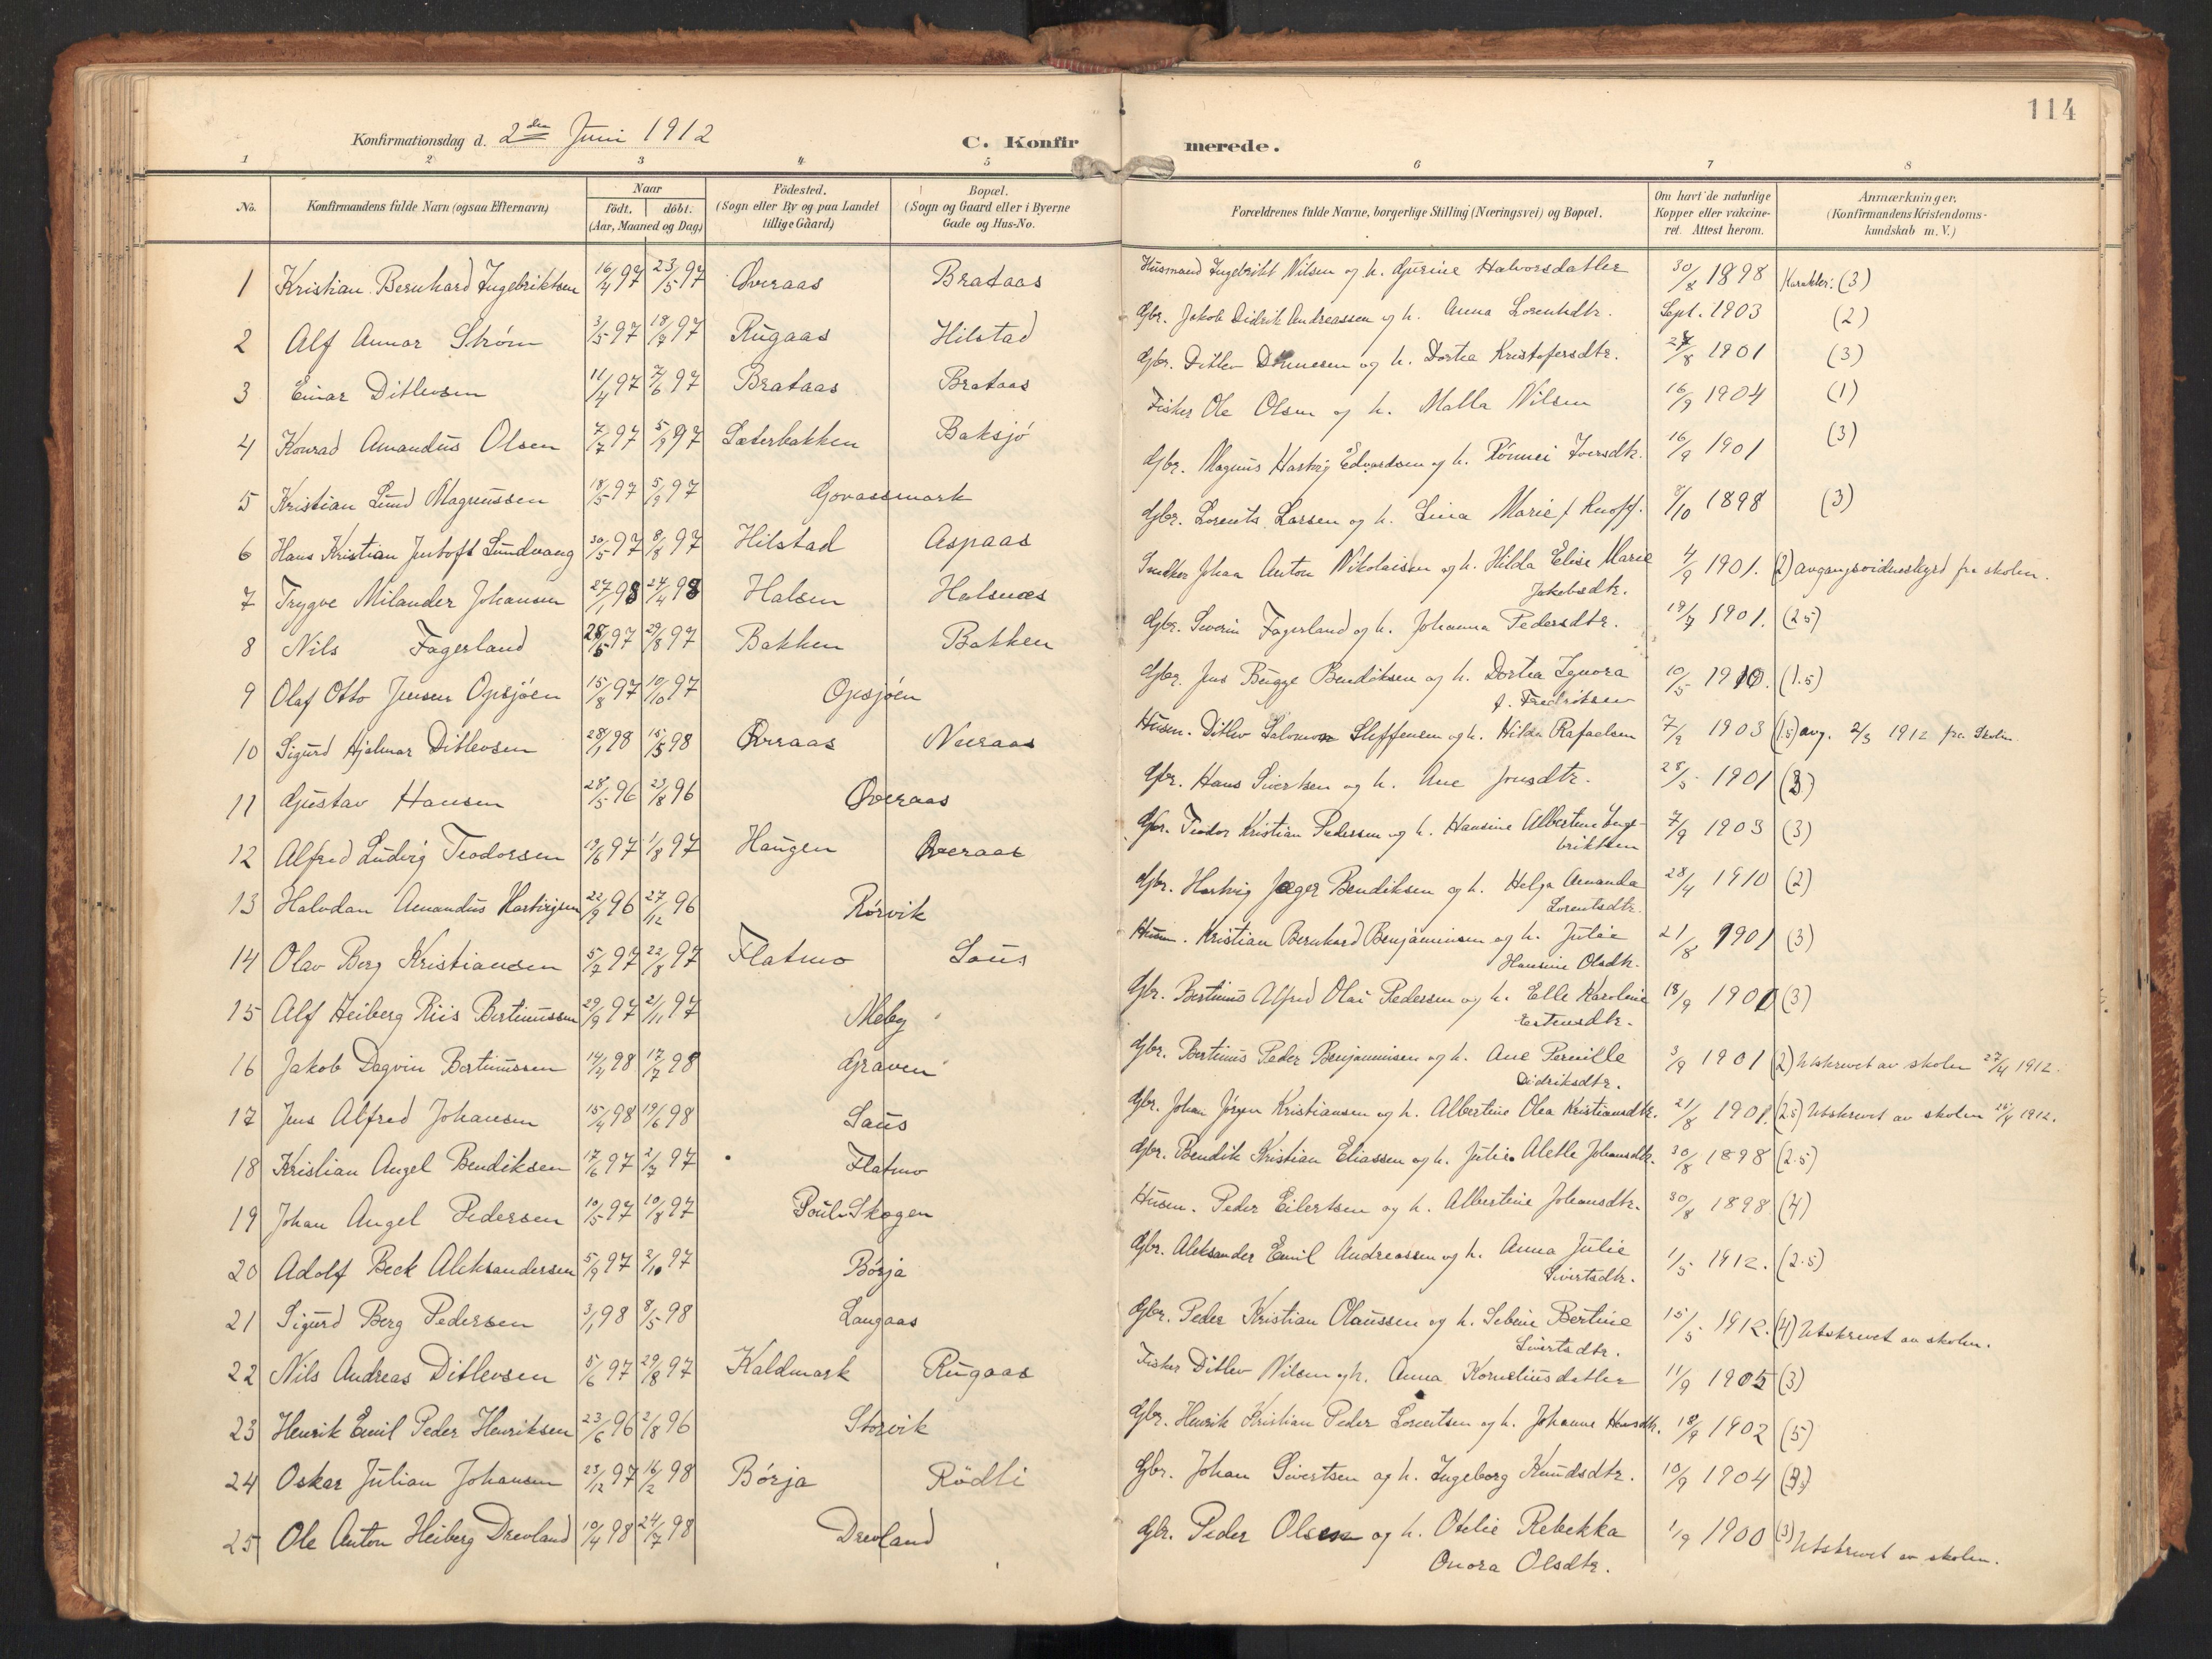 114
Konfirmationsdag d. 2den Juni 1912
C. Konfirmerede.
1 2 3 4 5 6 7 8
No.
Konfirmandens fulde Navn (ogsaa Efternavn)
Naar
født. døbt.
(Aar, Maaned og Dag)
Fødested.
(Sogn eller By og paa Landet
tillige Gaard)
Bopæl.
(Sogn og Gaard eller i Byerne
Gade og Hus-No.
Forældrenes fulde Navne, borgerlige Stilling (Næringsvei) og Bopæl.
Om havt de naturlige
Kopper eller vakcine-
ret. Attest herom.
Anmærkninger.
(Konfirmandens Kristendoms-
kundskab m. V.)
1 Kristian Bernhard Ingebriktsen 16/4 97 23/5 97 Øveraas Brataas Husmand Ingebrikt Nilsen og h. Gurine Halvorsdatter 30/8 1898 Karakter: (3)
2 Alf Annar Strøm 3/5 97 18/7 97 Rugaas Hilstad Gbr. Jakob Didrik Andreassen og h. Anna Lorentsdtr. Sept. 1903 (2)
3 Einar Ditlevsen 11/4 97 7/6 97 Brataas Brataas Gbr. Ditlev Dønnesen og h. Dortea Kristofersdtr. 27/8 1901 (3)
4 Konrad Amandus Olsen 7/7 97 5/9 97 Sæterbakken Baksjø Fisker Ole Olsen og h. Malla Nilsen 16/9 1904 (1)
5 Kristian Lund Magnussen 18/5 97 5/9 97 Govassmark Gbr. Magnus Hartvig Edvardsen og h. Rønnei Iversdtr. 16/9 1901 (3)
6 Hans Kristian Justoft Lundvang 30/5 97 8/8 97 Hilstad Aspaas Gbr. Lorents Larsen og h. Lina Marie f. Knoff. 8/10 1898 (3)
7 Trygve Milander Johansen 27/1 98 24/4 98 Halsen Halsnæs Snedker Johan Anton Nikolaisen og h. Hilda Elise Marie
Jakobsdtr. 4/9 1901. (2) avgangsvidnesbyrd fra skolen.
8 Nils Fagerland 28/6 97 29/8 97 Bakken Bakken Gbr. Severin Fagerland og h. Johanna Pedersdtr. 19/7 1901. (2.5)
9 Olaf Otto Jensen Opsjøen 15/8 97 10/10 97 Opsjøen Gbr. Jens Bugge Bendiksen og h. Dortea Ignora
f. Fredriksen 10/5 1910. (1.5)
10 Sigurd Hjalmar Ditlevsen 28/1 98 15/5 98 Øveraas Neeraas Husm. Ditlev Salomon Steffensen og h. Hilda Rafaelsen 7/9 1903 (1.5) avg. 2/3 1912 fra Skolen
11 Gustav Hansen 28/5 96 23/8 96 Øveraas Gbr. Hans Sivertsen og h. Ane Jonsdtr. 28/5 1901 (3)
12 Alfred Ludvig Teodorsen 19/6 97 1/8 97 Haugen Øveraas Gbr. Teodor Kristian Pedersen og h. Hansine Albertine Inge-
briktsen 7/9 1903 (3)
13 Halvdan Amandus Hartvigsen 22/9 96 27/12 96 Rørvik Gbr. Hartvig Jæger Bendiksen og h. Helga Amanda
Lorentsdtr. 28/4 1910 (2)
14 Olav Berg Kristiansen 5/7 97 22/8 97 Flatmo Saus Husm. Kristian Bernhard Benjaminsen og h. Julie
Hansine Olsdtr. 21/8 1901 (3)
15 Alf Heiberg Riis Bertinussen 29/9 97 21/11 97 Meby Gbr. Bertinus Alfred Olai Pedersen og h. Elle Karoline
Estensdtr. 18/9 1901 (3)
16 Jakob Dagvin Bertinussen 14/4 98 17/7 98 Graven Gbr. Bertinus Peder Benjaminsen og h. Ane Pernille
Didriksdtr. 3/9 1901 (2) Utskrevet av skolen 27/4 1912.
17 Jens Alfred Johansen 15/4 98 19/6 98 Saus Gbr. Johan Jørgen Kristiansen og h. Albertine Olea Kristiansdtr. 21/8 1901. (2.5) Utskrevet av skolen 25/4 1912.
18 Kristian Angel Bendiksen 17/6 97 2/7 97 Flatmo Gbr. Bendik Kristian Eliassen og h. Julie Alette Johansdtr. 30/8 1898 (2.5)
19 Johan Angel Pedersen 10/5 97 10/8 97 Poul-Skogen Husm. Peder Eilertsen og h. Albertine Johansdtr. 30/8 1898 (4)
20 Adolf Beck Aleksandersen 5/9 97 2/10 97 Børja Gbr. Aleksander Emil Andreassen og h. Anna Julie
Sivertsdtr. 1/5 1912. (2.5)
21 Sigurd Berg Pedersen 3/1 98 8/5 98 Langaas Gbr. Peder Kristian Olaussen og h. Sebine Bertine
Sivertsdtr. 15/5 1912. (4) Utskrevet av skolen.
22 Nils Andreas Ditlevsen 5/6 97 29/8 97 Kaldmark Rugaas Fisker Ditlev Nilsen og h. Anna Korneliusdatter 11/9 1905 (3)
23 Henrik Emil Peder Henriksen 23/6 96 2/8 96 Storvik Gbr. Henrik Kristian Peder Lorentsen og h. Johanne Hansdtr. 18/9 1902 (5)
24 Oskar Julian Johansen 23/12 97 16/2 98 Børja Rødli Gbr. Johan Sivertsen og h. Ingeborg Knudsdtr. 10/9 1904
25 Ole Anton Heiberg Drevland 10/4 98 24/7 98 Drevland Gbr. Peder Olsen og h. Otelie Rebekka
Onora Olsdtr. 1/9 1900 (3) Utskrevet av skolen.